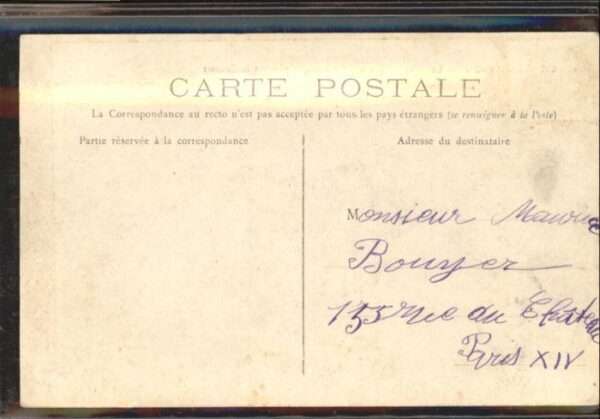 CARTE POSTALE
La Correspondance au recto n'est pas acceptée par tous les pays étrangers (se renseigner à la Poste)
Partie réservée à la correspondance
Adresse du destinataire
Monsieur Maurice
Bouyer
155 rue du Château
Paris XIV